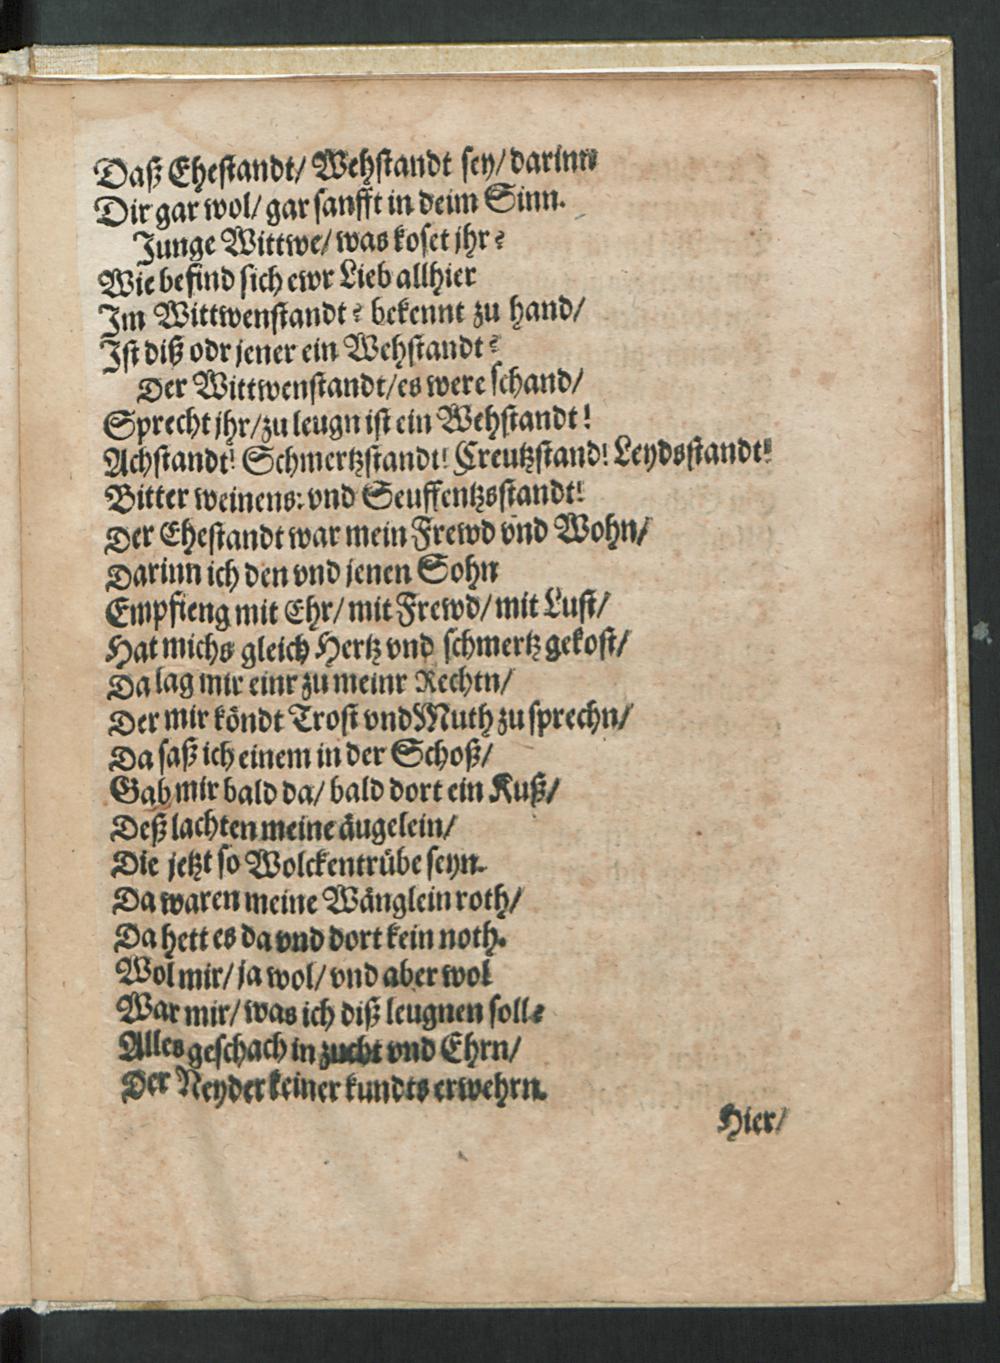 Daß Ehestandt/ Wehstandt sey/ darinn
Dir gar wol/ gar sanfft in deim Sinn.
Junge Wittwe/ was koset jhr?
Wie befind sich ewr Lieb allhier
Im Wittwenstandt? bekennt zu hand/
Ist diß odr jener ein Wehstandt?
Der Wittwenstandt/ es were schand/
Sprecht jhr/ zu leugn ist ein Wehstandt!
Achstandt! Schmertzstandt! Creutzstand! Leydsstandt!
Bitter weinens: vnd Seuffentzsstandt!
Der Ehestandt war mein Frewd vnd Wohn/
Darinn ich den vnd jenen Sohn
Empfieng mit Ehr/ mit Frewd/ mit Lust/
Hat michs gleich Hertz vnd schmertz gekost/
Da lag mir einr zu meinr Rechtn/
Der mir köndt Trost vnd Muth zu sprechn/
Da saß ich einem in der Schoß/
Gab mir bald da/ bald dort ein Kuß/
Deß lachten meine äugelein/
Die jetzt so Wolckentrübe seyn.
Da waren meine Wänglein roth/
Da hett es da vnd dort kein noth.
Wol mir/ ja wol/ vnd aber wol
War mir/ was ich diß leugnen soll?
Alles geschach in zucht vnd Ehrn/
Der Neyder keiner kundts erwehrn.
Hier/